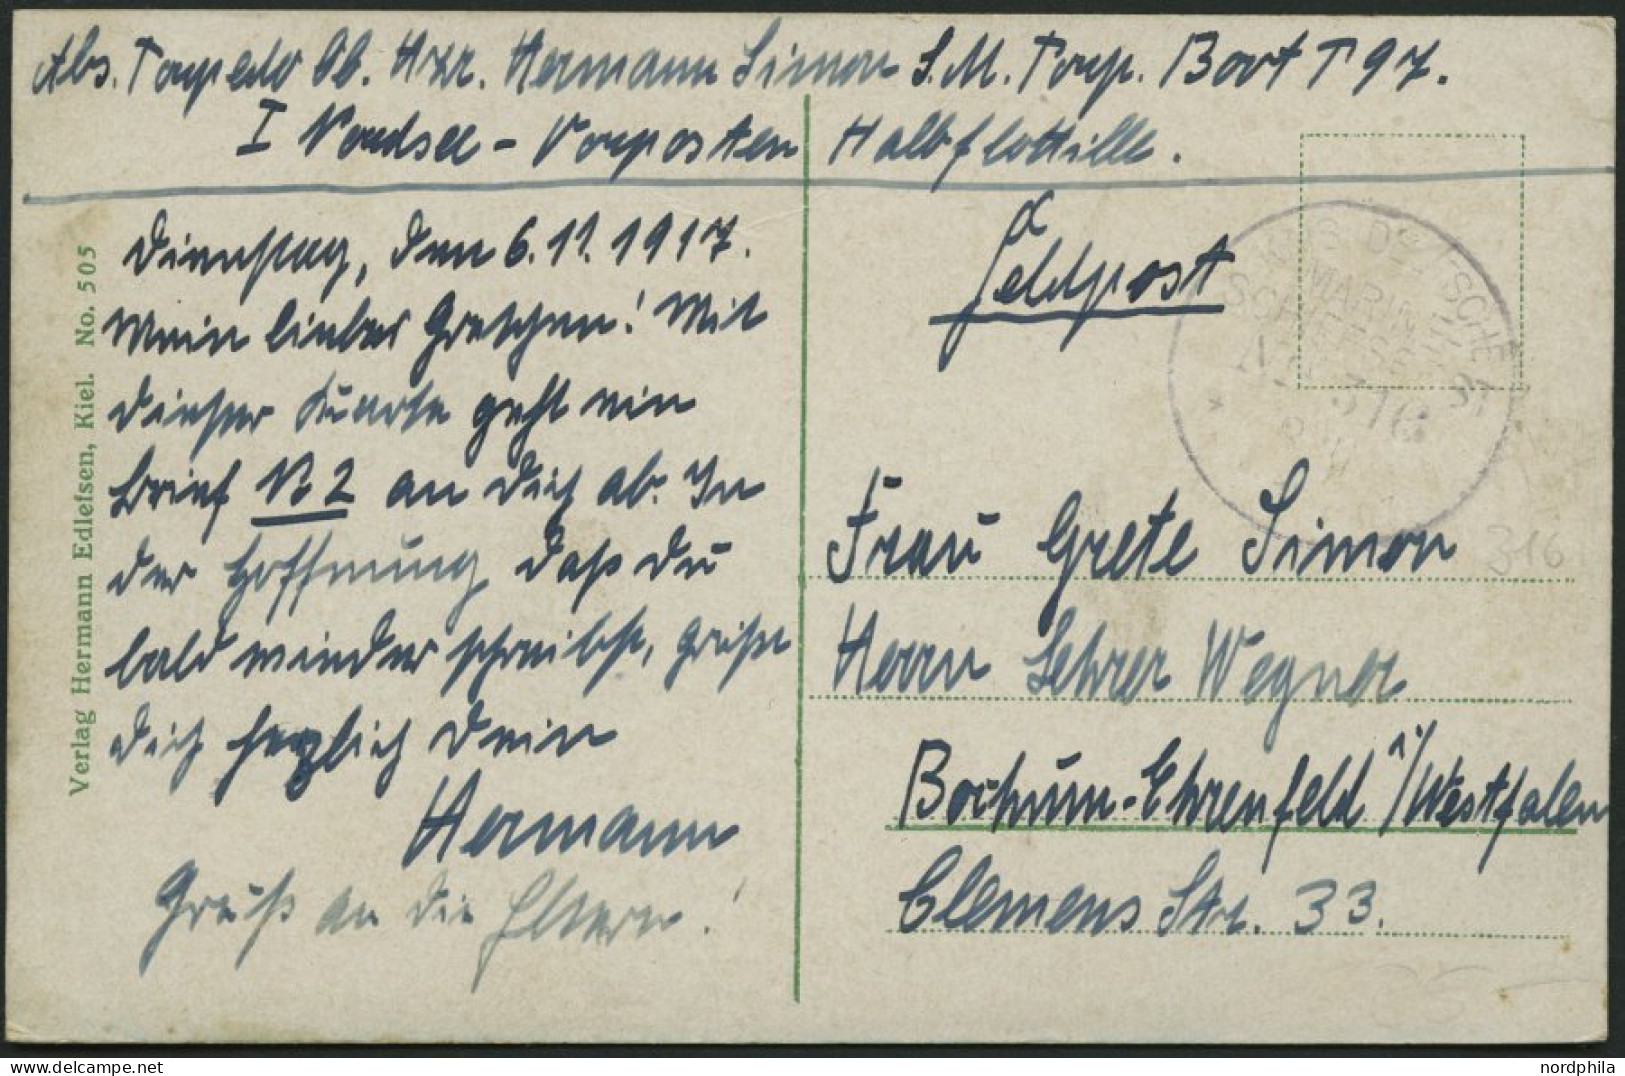 Abs. Torpedo Ob. Hzr. Hermann Simon S.M. Torp. Boot T 97.
I Nordsee - Vorposten Halbflottille.
Dienstag, den 6.11.1917.
Mein liebes Gretchen! Mit
dieser Karte geht ein
Brief No 2 an Dich ab. In
der Hoffnung daß Du
bald wieder schreibst, grüßt
Dich herzlich Dein
Hermann
Gruß an die Eltern!
Verlag Hermann Edlefsen, Kiel. No. 505
Feldpost
DEUTSCHE
MARINE
SCHIFFSPOST
No 316
31
316
Frau Grete Simon
Herrn Lehrer Wegner
Bochum-Ehrenfeld i/Westfalen
Clemens Str. 33.
nordphila